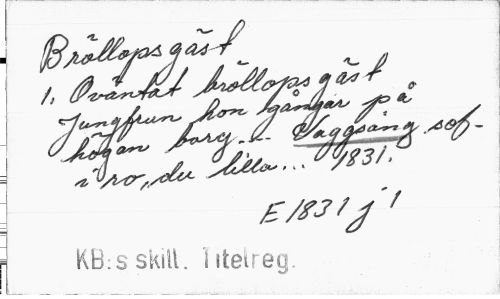 Bröllopsgäst
1. Oväntat bröllopsgäst
Jungfrun hon gångar på
högan barg... Vaggsång sof-
i ro, du lilla... 1831.
E 1831 j 1
KB:s skill. Titelreg.